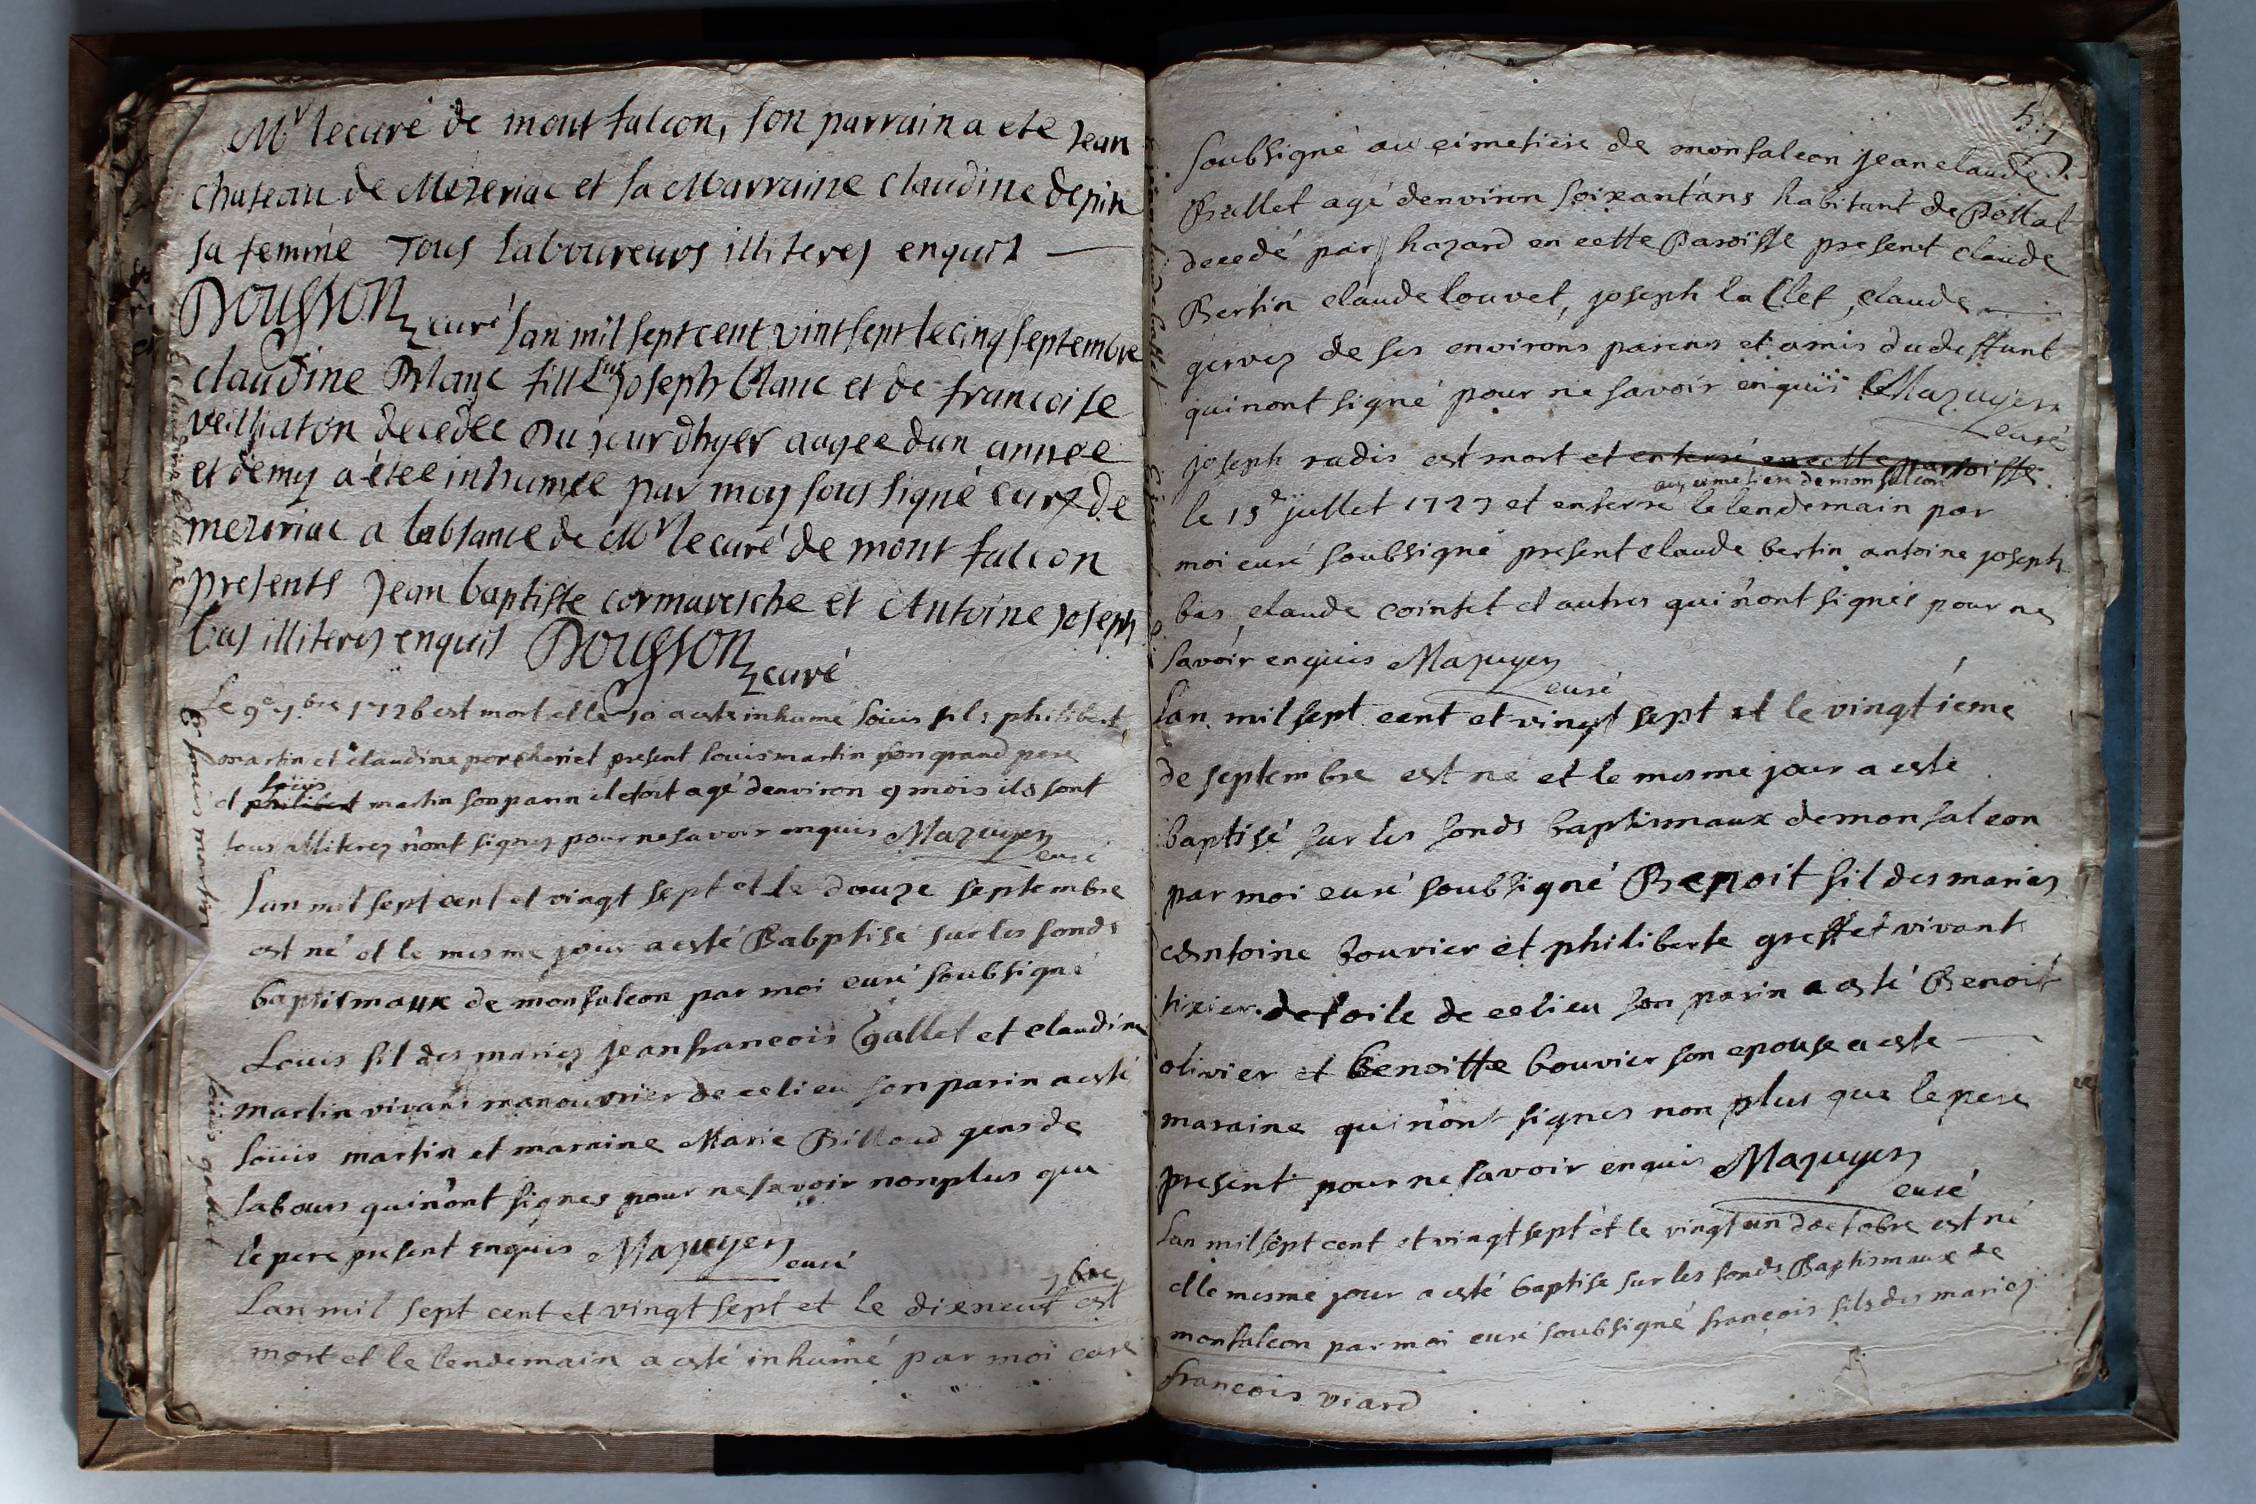 Mr lecuré de mont falcon, son parrain a ete Jean
chateau de Mezeriac et sa Marraine claudine depin
sa femme Tous laboureurs illiteres enquis
Dousson curé
lan mil sept cent vint sept le cinq septembre
claudine Blanc fille Joseph blanc et de francoise
veilliaton decedee Du jour dhyer aagee dun annee
et demy a étee inhumee par moy sous signé curé de
mezeriac a labsance de Mr lecuré de mont falcon
presents Jean baptiste cormaresche et Antoine Joseph
bas illiteres enquis Dousson curé
Le 9e 7bre 1726 est mort et le 10 a este inhumé loüis fils philibert
martin et claudine porcheriet present louis martin son grand pere
loüis
et philibert martin son parin il etoit agé denviron 9 mois ils sont
tous illiterez n'ont signez pour ne savoir enquis Mazuyer
curé
Lan mil sept cent et vingt sept et le douze septembre
est né et le mesme jour a esté Babptisé sur les fonds
baptismaux de monfalcon par moi curé soubsigné
Loüis fil des mariez jean francois gallet et claudine
martin vivans manouvrier de ce lieu son parin a esté
loüis martin et maraine Marie Billoud gens de
labours qui n'ont signes pour ne savoir non plus que
le pere present enquis Mazuyer
curé
7bre
Lan mil sept cent et vingt sept et le dixneuf est
mort et le lendemain a esté inhumé par moi curé
Claudine blanc
louis martin
loüis gallet
soubsigné au cimetiere de monfalcon jean claude
Brallet agé denviron soixant'ans habitant de Pollat
decedé par hazard en cette Paroisse present claude
Bertin claude louvet, joseph la Clef, claude
gervez de ses environs parens et amis du deffunt
qui nont signé pour ne savoir enquis Mazuyer
curé
joseph radis est mort et enterré en cette parroisse
au cimetiere de monfalcon
le 15e jullet 1727 et enterré le lendemain par
moi curé soubsigné present claude bertin antoine joseph
bas claude cointet et autres qui n'ont signés pour ne
savoir enquis Mazuyer
curé
Lan mil sept cent et vingt sept et le vingtiéme
de septembre est né et le mesme jour a esté
baptisé sur les fonds baptismaux de monfalcon
par moi curé soubsigné Benoit fil des mariez
Antoine bouvier et philiberte greffet vivant
tixier de toile de ce lieu son parin a esté Benoit
olivier et Benoitte bouvier son epouse a este
maraine qui n'ont signes non plus que le pere
present pour ne savoir enquis Mazuyer
curé
Lan mil sept cent et vingt sept et le vingt un doctobre est né
et le mesme jour a esté baptise sur les fonds Baptismaux de
monfalcon par moi curé soubsigné françois fils des mariez
francois viard